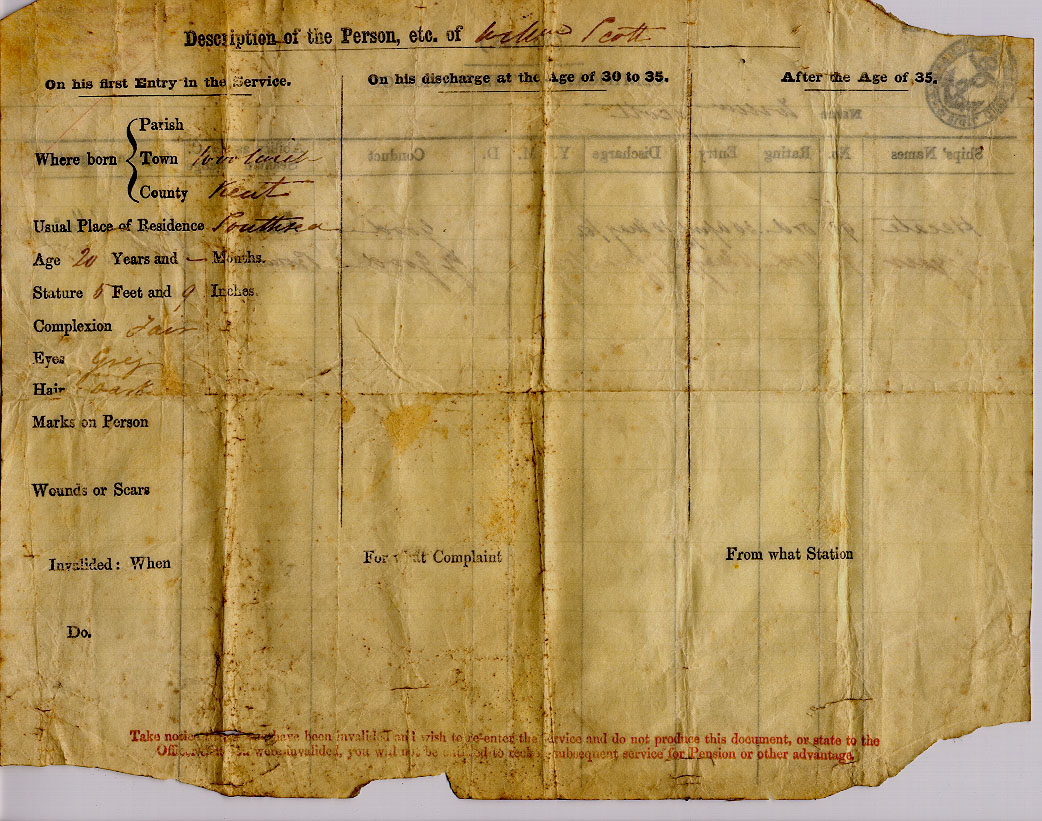 Description of the Person, etc. of William Scott
On his first Entry in the Service.
On his discharge at the Age of 30 to 35.
After the Age of 35.
Where born
Parish
Town Woolwich
County Kent
Usual Place of Residence Southsea
Age 20 Years and — Months.
Stature 5 Feet and 9 Inches.
Complexion Fair
Eyes Grey
Hair Dark
Marks on Person
Wounds or Scars
Invalided: When
For what Complaint
From what Station
Do.
Name
Ships' Names No. Rating Entry Discharge Y. M. D. Conduct
Take notice have been invalided and wish to re-enter the Service and do not produce this document, or state to the
Officers you were invalided, you will not be subsequent service for Pension or other advantage.